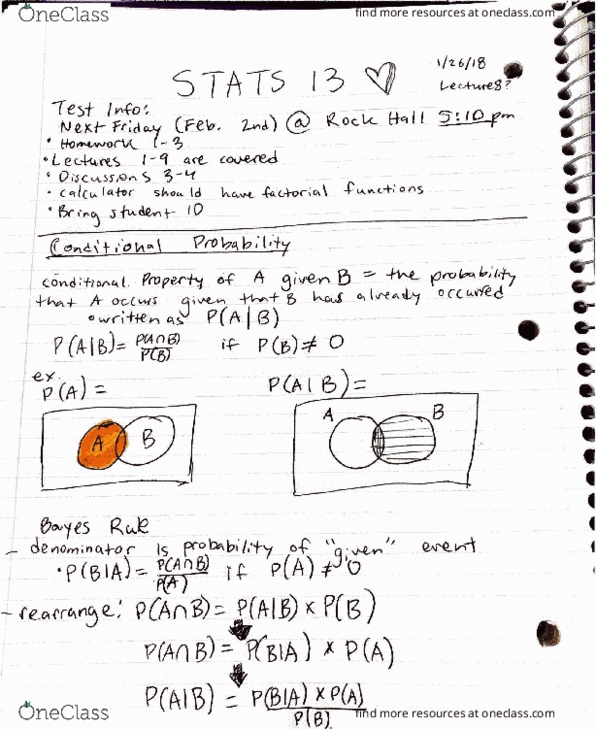 OneClass
find more resources at oneclass.com
1/26/18
STATS 13 ♡
Lecture 8?
Test Info:
Next Friday (Feb. 2nd) @ Rock Hall 5:10 pm
• Homework 1-3
• Lectures 1-9 are covered
• Discussions 3-4
• calculator should have factorial functions
• Bring student ID
Conditional Probability
conditional Property of A given B = the probability
that A occurs given that B has already occurred
○ written as P(A|B)
P(A|B) = P(A∩B)/P(B) if P(B) ≠ 0
ex.
P(A) = P(A|B) =
A B A B
Bayes Rule
- denominator is probability of "given" event
• P(B|A) = P(A∩B)/P(A) if P(A) ≠ 0
- rearrange: P(A∩B) = P(A|B) × P(B)
P(A∩B) = P(B|A) × P(A)
P(A|B) = P(B|A) × P(A)/P(B)
OneClass
find more resources at oneclass.com